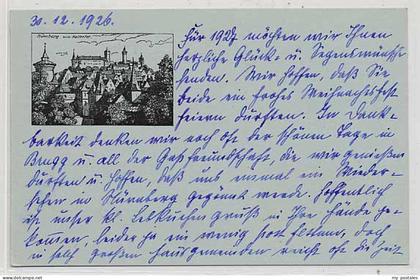 30.12.1926.
Für 1927 möchten wir Ihnen
herzliche Glück- u. Segenswünsche
senden. Wir hoffen, daß Sie
beide ein frohes Weihnachtsfest
feiern durften. In Dank-
barkeit denken wir noch oft der schönen Tage in
Brugg u. all der Gastfreundschaft, die wir genießen
durften u. hoffen, daß uns einmal ein Wieder-
sehen in Nürnberg gegönnt werde. Hoffentlich
ist unser kl. Lebkuchengruß in Ihre Hände ge-
kommen, leider ja ein wenig post festum, doch
in solch großen Hausgemeinden reicht oft die Zeit